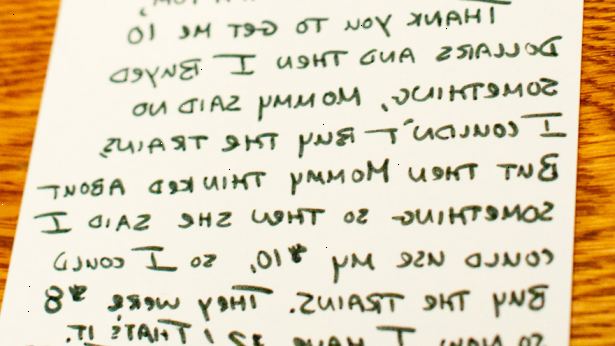 THANK YOU TO GET ME 10
DOLLARS AND THEN I BUYED
SOMETHING, MOMMY SAID NO
I COULDN'T BUY THE TRAINS.
BUT THEN MOMMY THINKED ABOUT
SOMETHING- SO THEN SHE SAID I
COULD USE MY $10, SO I COULD
BUY THE TRAINS. THEY WERE $8
SO NOW I HAVE $2! THAT'S IT.